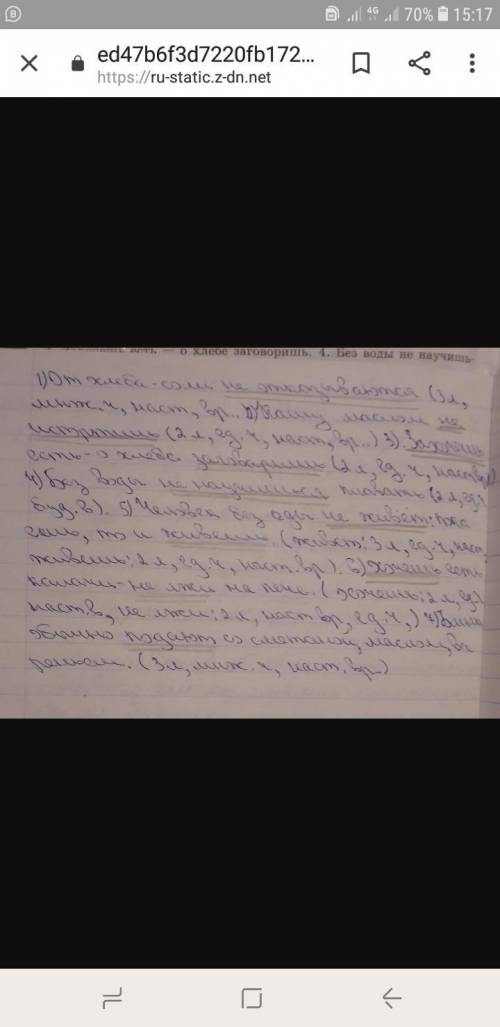 70% 15:17
4G
ed47b6f3d7220fb172...
https://ru-static.z-dn.net
есть — о хлебе заговоришь. 4. Без воды не научишь-
1) От хлеба-соли не отказываются (3л,
множ.ч, наст, вр.. 2) Кашу маслом не
испортишь (2л, ед.ч, наст, вр..) 3) Захочешь
есть-о хлебе заговоришь (2л, ед.ч,
4) Без воды не научишься плавать (2л, ед.ч
буд.в). 5) Человек без еды не живёт:
то и живешь.. (живёт: 3л, ед.ч, наст
живешь: 2л, ед.ч, наст.вр). 6) Хочешь есть
калачи-не лжи на печи. (хочешь: 2л, ед.ч
наст.в, не лжи: 2л, наст вр, ед.ч,) 7) Блины
обычно подают со сметаной, маслом, ва
реньем. (3л, множ.ч, наст.вр..)